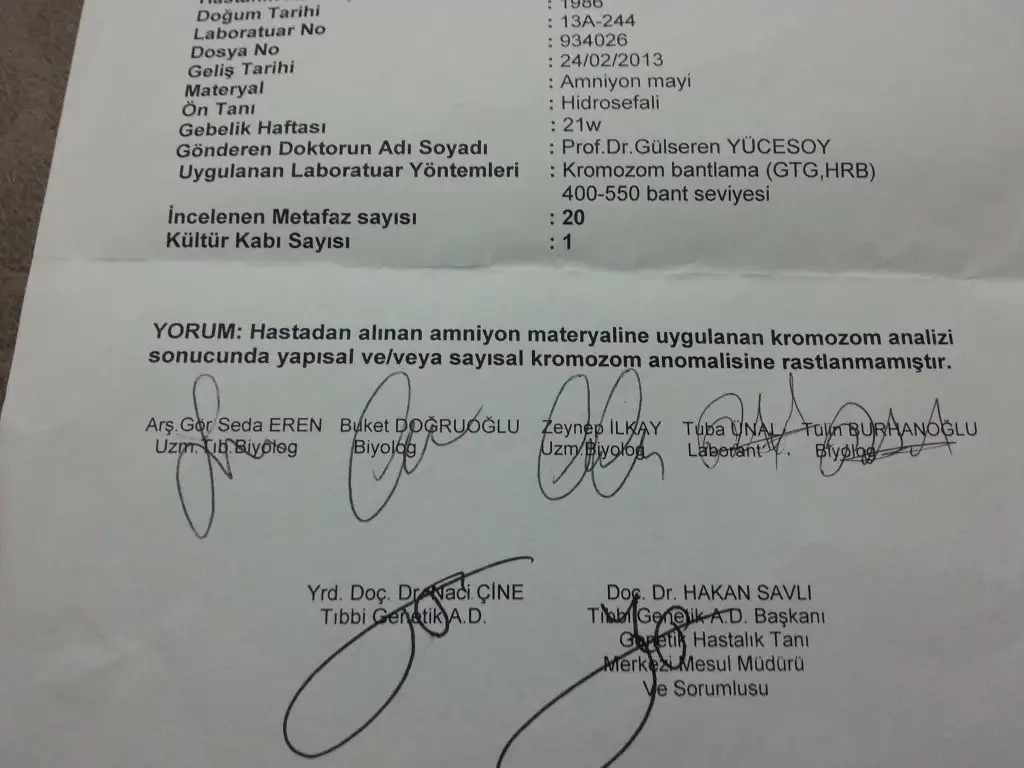 Doğum Tarihi : 1986
Laboratuar No : 13A-244
Dosya No : 934026
Geliş Tarihi : 24/02/2013
Materyal : Amniyon mayi
Ön Tanı : Hidrosefali
Gebelik Haftası : 21w
Gönderen Doktorun Adı Soyadı : Prof.Dr.Gülseren YÜCESOY
Uygulanan Laboratuar Yöntemleri : Kromozom bantlama (GTG,HRB)
400-550 bant seviyesi
İncelenen Metafaz sayısı : 20
Kültür Kabı Sayısı : 1
YORUM: Hastadan alınan amniyon materyaline uygulanan kromozom analizi
sonucunda yapısal ve/veya sayısal kromozom anomalisine rastlanmamıştır.
Arş.Gör Seda EREN Buket DOĞRUOĞLU Zeynep İLKAY Tuba ÜNAL Tülin BURHANOĞLU
Uzm.Tıb.Biyolog Biyolog Uzm.Biyolog Laborant Biyolog
Yrd. Doç. Dr. Naci ÇİNE Doç. Dr. HAKAN SAVLI
Tıbbi Genetik A.D. Tıbbi Genetik A.D. Başkanı
Genetik Hastalık Tanı
Merkezi Mesul Müdürü
Ve Sorumlusu